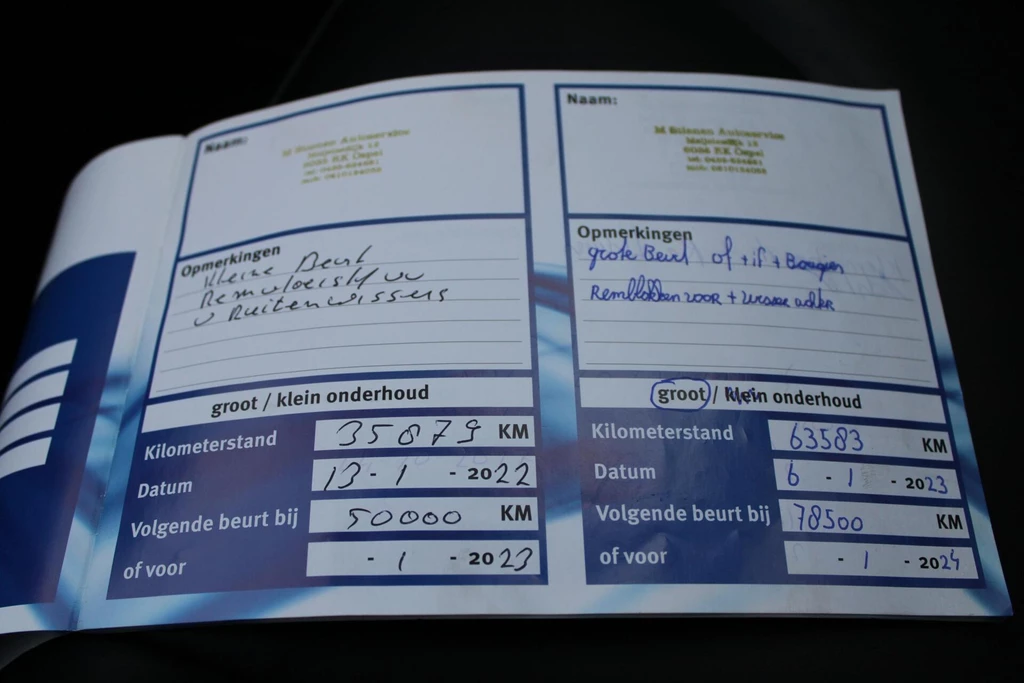 Naam:
M Autoservice
Opmerkingen
Kleine Beurt
Remvloeistof vv
v Ruitenwissers
groot / klein onderhoud
Kilometerstand 35879 KM
Datum 13 - 1 - 2022
Volgende beurt bij 50000 KM
of voor - 1 - 2023
Naam:
M Autoservice
Opmerkingen
grote Beurt of + if + Bougien
Remblokken voor +
groot / klein onderhoud
Kilometerstand 63583 KM
Datum 6 - 1 - 2023
Volgende beurt bij 78500 KM
of voor - 1 - 2024